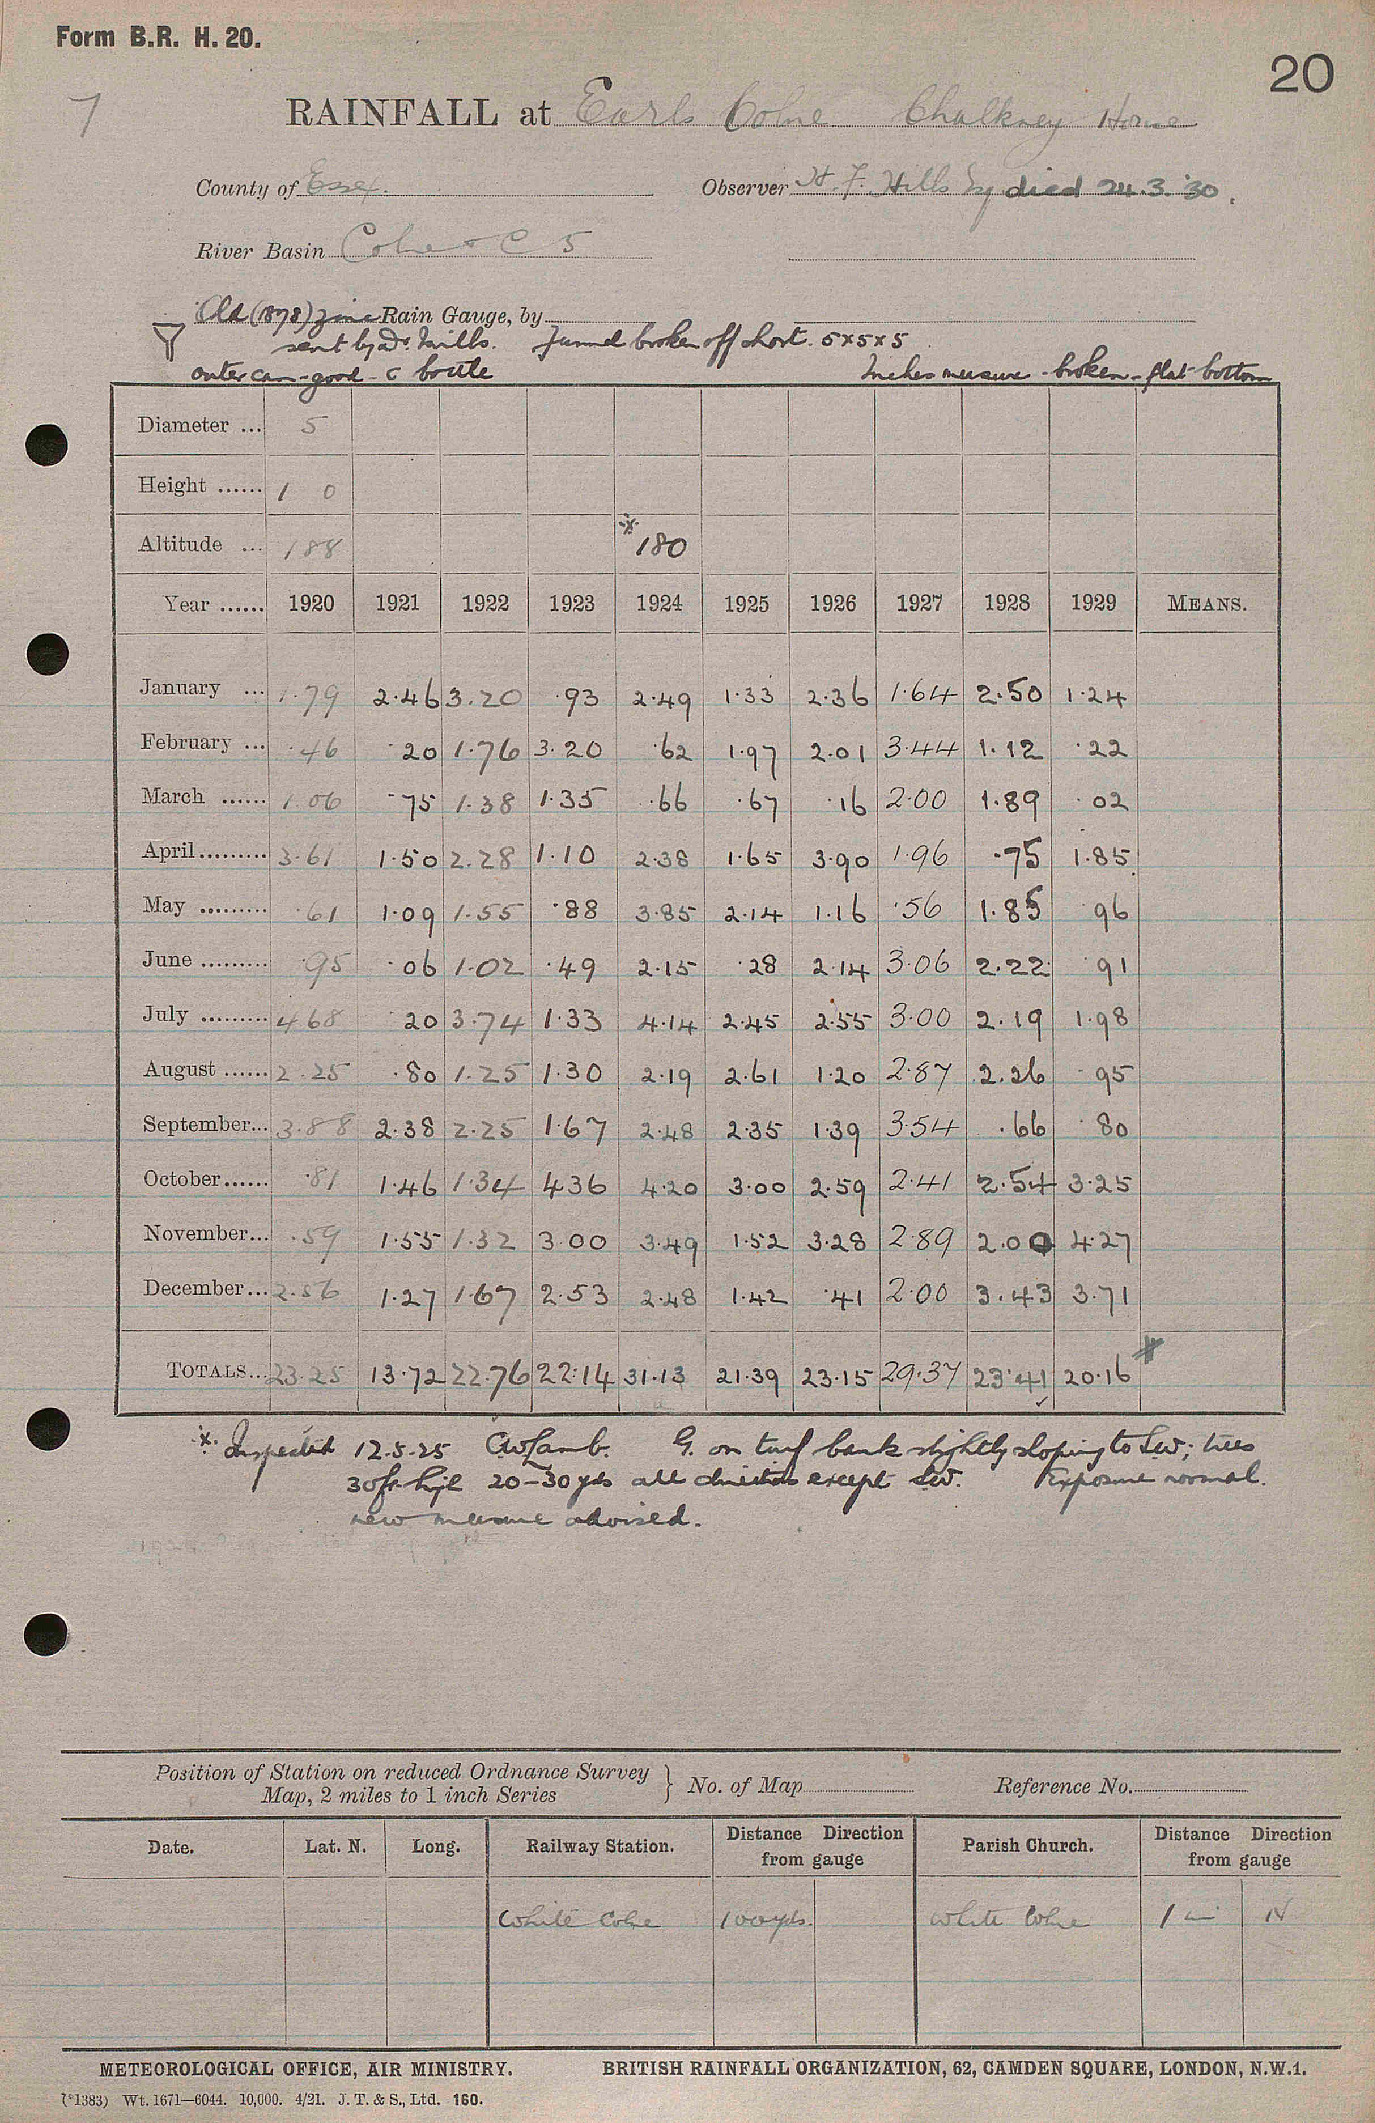 Form B.R. H. 20.
20
7
RAINFALL at Earls Colne Chalkney House
County of Essex. Observer H. F. Hills Esq died 24.3.'30.
River Basin Colne C 5
Old (1878) zinc Rain Gauge, by
sent by Dr Mills. Funnel broken off short. 5x5x5
outer can - good - c bottle Inches measure - broken - flat bottom
Diameter ... 5
Height ...... 1 0
Altitude ... 188 * 180
Year ...... 1920 1921 1922 1923 1924 1925 1926 1927 1928 1929 MEANS.
January ... 1.79 2.46 3.20 .93 2.49 1.33 2.36 1.64 2.50 1.24
February ... .46 .20 1.76 3.20 .62 1.97 2.01 3.44 1.12 .22
March ...... 1.06 .75 1.38 1.35 .66 .67 .16 2.00 1.89 .02
April ......... 3.61 1.50 2.28 1.10 2.38 1.65 3.90 1.96 .75 1.85
May ......... .61 1.09 1.55 .88 3.85 2.14 1.16 .56 1.85 .96
June ......... .95 .06 1.02 .49 2.15 .28 2.14 3.06 2.22 .91
July ......... 4.68 .20 3.74 1.33 4.14 2.45 2.55 3.00 2.19 1.98
August ...... 2.25 .80 1.25 1.30 2.19 2.61 1.20 2.87 2.26 .95
September... 3.88 2.38 2.25 1.67 2.48 2.35 1.39 3.54 .66 .80
October...... .81 1.46 1.34 4.36 4.20 3.00 2.59 2.41 2.54 3.25
November... .59 1.55 1.32 3.00 3.49 1.52 3.28 2.89 2.00 4.27
December... 2.56 1.27 1.67 2.53 2.48 1.42 .41 2.00 3.43 3.71
TOTALS... 23.25 13.72 22.76 22.14 31.13 21.39 23.15 29.37 23.41 20.16
* Inspected 12.5.25 CWLamb. G. on turf bank slightly sloping to SW; trees
30ft high 20-30 yds all directions except SW. Exposure normal.
new measure advised.
Position of Station on reduced Ordnance Survey
Map, 2 miles to 1 inch Series } No. of Map Reference No.
Date. Lat. N. Long. Railway Station. Distance Direction from gauge Parish Church. Distance Direction from gauge
White Colne 100yds. White Colne 1 mi N
METEOROLOGICAL OFFICE, AIR MINISTRY. BRITISH RAINFALL ORGANIZATION, 62, CAMDEN SQUARE, LONDON, N.W.1.
(*1383) Wt. 1671—6044. 10,000. 4/21. J. T. & S., Ltd. 160.